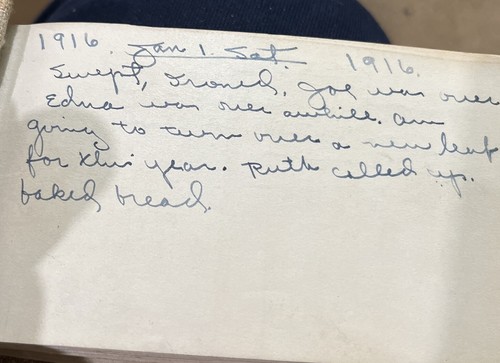 1916. Jan 1. Sat. 1916.
Swept, Ironed, Joe was over
Edna was over awhile. am
going to turn over a new leaf
for this year. Ruth called up.
baked bread.